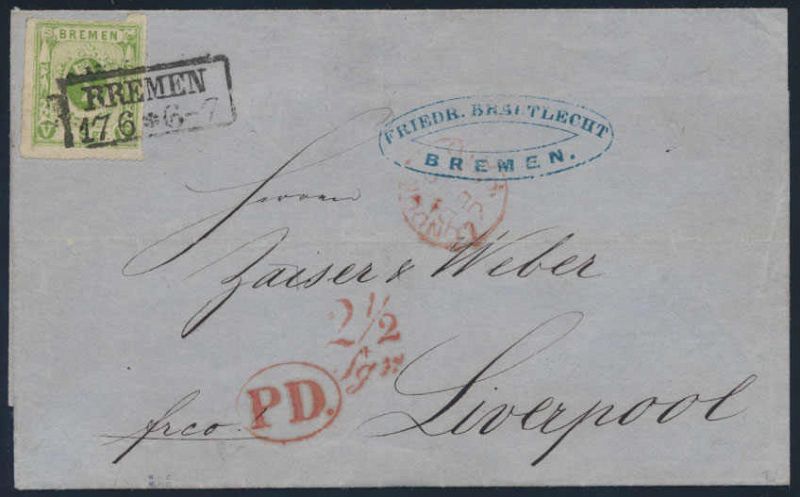 BREMEN
BREMEN
17 6 * 6-7
FRIEDR. BRAUTLECHT
BREMEN.
LONDON
Herren
Zaiser & Weber
2 1/2
Sgr
PD.
frco.
Liverpool